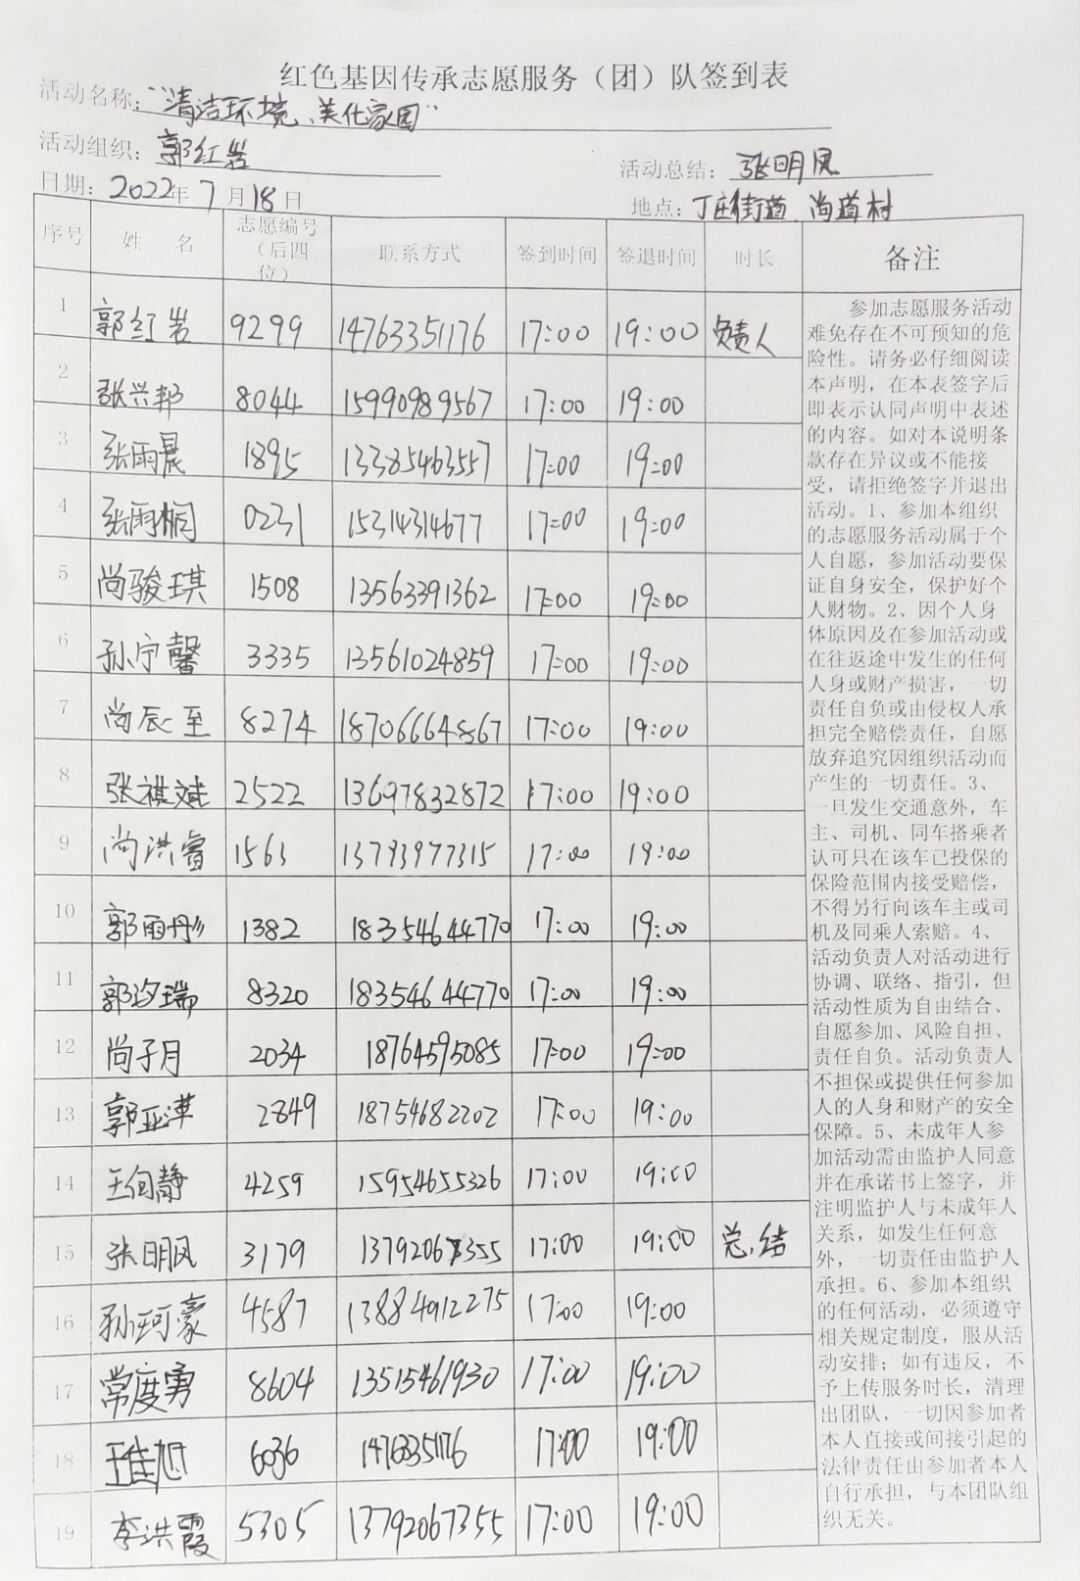 红色基因传承志愿服务（团）队签到表
活动名称："清洁环境、美化家园"
活动组织：郭红岩
活动总结：张明凤
日期：2022年7月18日
地点：丁庄街道 尚道村
序号 姓 名 志愿编号（后四位） 联系方式 签到时间 签退时间 时长 备注
1 郭红岩 9299 14763351176 17:00 19:00 负责人
2 张兴邦 8044 15990989567 17:00 19:00
3 张雨晨 1895 13385463557 17:00 19:00
4 张雨桐 0231 15314314677 17:00 19:00
5 尚骏琪 1508 13563391362 17:00 19:00
6 孙宁馨 3335 13561024859 17:00 19:00
7 尚辰至 8274 18706664867 17:00 19:00
8 张祺斌 2522 13697832872 17:00 19:00
9 尚洪睿 1563 13793977315 17:00 19:00
10 郭雨彤 1382 18354644770 17:00 19:00
11 郭汐瑞 8320 18354644770 17:00 19:00
12 尚子月 2034 18764595085 17:00 19:00
13 郭亚泽 2849 18754682202 17:00 19:00
14 王向静 4259 15954655326 17:00 19:00
15 张明凤 3179 13792067355 17:00 19:00 总结
16 孙珂豪 4587 13884912275 17:00 19:00
17 常度勇 8604 13515461930 17:00 19:00
18 王佳旭 6036 14763351176 17:00 19:00
19 李洪霞 5305 13792067355 17:00 19:00
参加志愿服务活动
难免存在不可预知的危
险性。请务必仔细阅读
本声明，在本表签字后
即表示认同声明中表述
的内容。如对本说明条
款存在异议或不能接
受，请拒绝签字并退出
活动。1、参加本组织
的志愿服务活动属于个
人自愿，参加活动要保
证自身安全，保护好个
人财物。2、因个人身
体原因及在参加活动或
在往返途中发生的任何
人身或财产损害，一切
责任自负或由侵权人承
担完全赔偿责任，自愿
放弃追究因组织活动而
产生的一切责任。3、
一旦发生交通意外，车
主、司机、同车搭乘者
认可只在该车已投保的
保险范围内接受赔偿，
不得另行向该车主或司
机及同乘人索赔。4、
活动负责人对活动进行
协调、联络、指引，但
活动性质为自由结合、
自愿参加、风险自担、
责任自负。活动负责人
不担保或提供任何参加
人的人身和财产的安全
保障。5、未成年人参
加活动需由监护人同意
并在承诺书上签字，并
注明监护人与未成年人
关系，如发生任何意
外，一切责任由监护人
承担。6、参加本组织
的任何活动，必须遵守
相关规定制度，服从活
动安排；如有违反，不
予上传服务时长，清理
出团队，一切因参加者
本人直接或间接引起的
法律责任由参加者本人
自行承担，与本团队组
织无关。